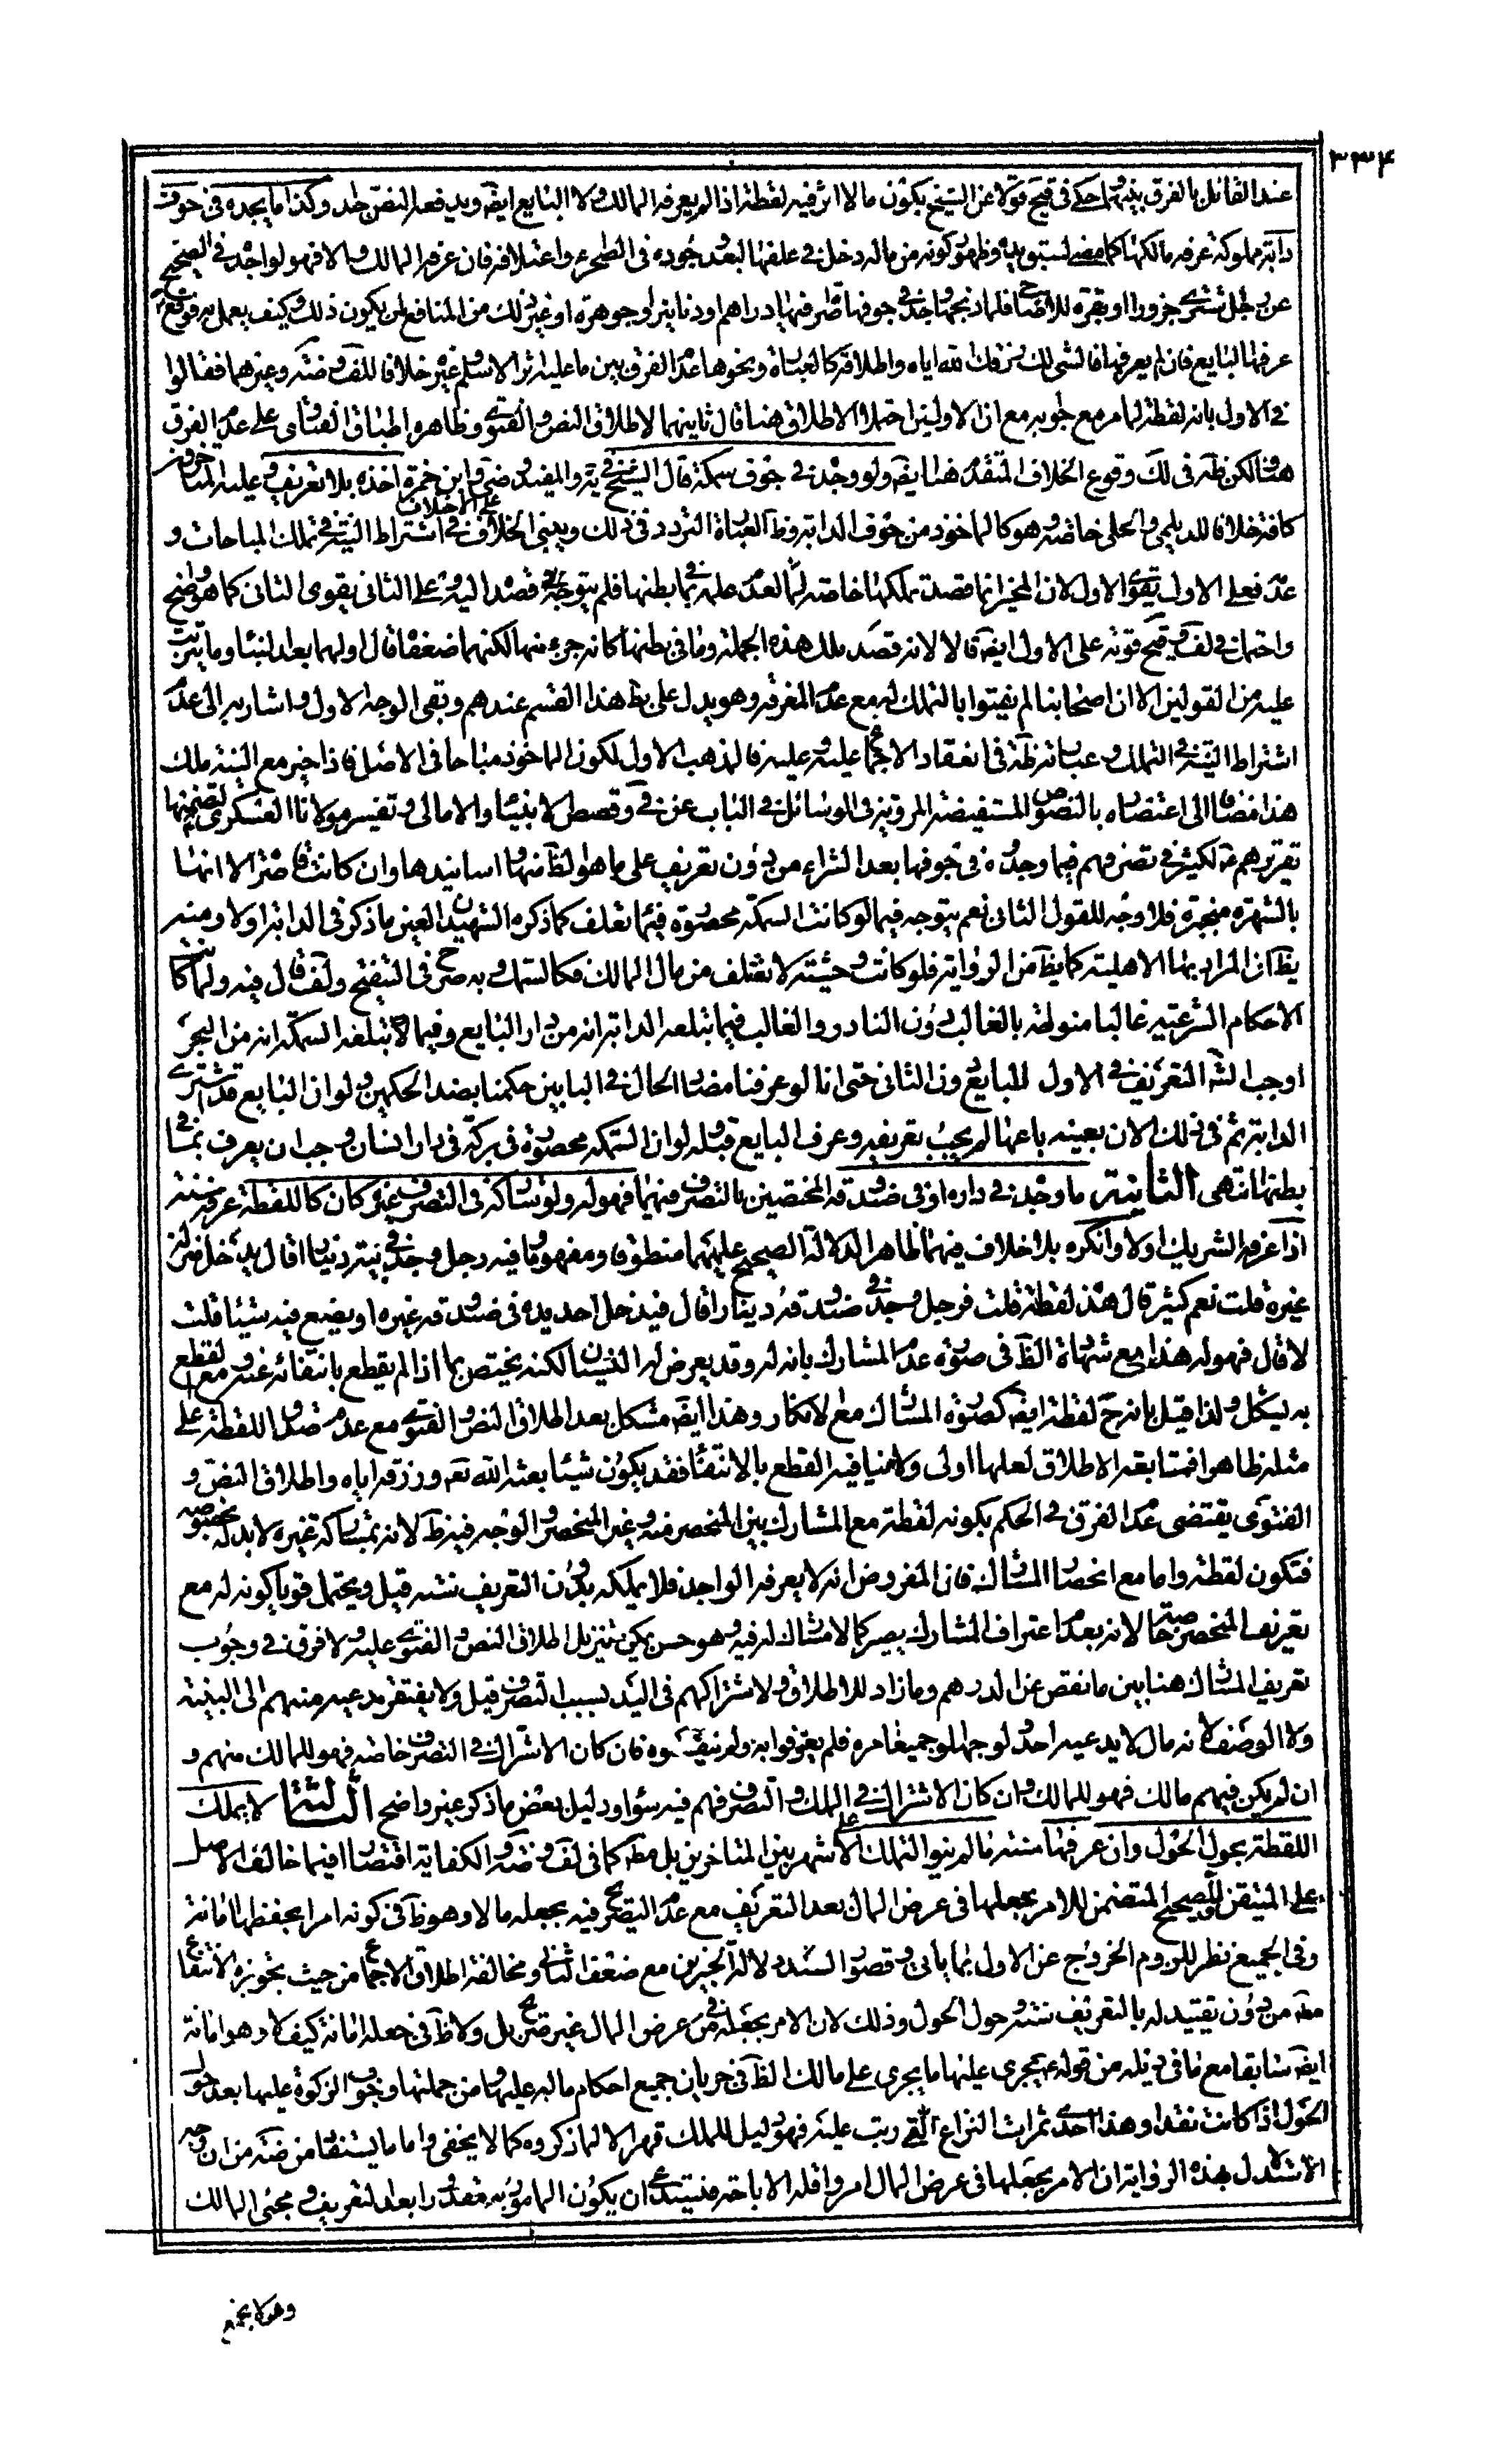 ٣٣٤
عند القائل بالفرق بينهما حكي في قيح قولا عن الشيخ بكون ما لا اثر فيه لقطة اذا لم يعرفه المالك ولا البايع ايضه ويدفعه النص جدا وكذا ما يجده في جوف
دابة مملوكة عرفه مالكها كما مضى لسبق يده وظهور كونه من ماله دخل في علفها لبعد وجوده في الصحراء واعتلافه فان عرفه المالك والا فهو لواجده ففي الصحيح
عن رجل تشتري جزورا او بقرة للاضاحي فلما ذبحها وجد في جوفها صرة فيها دراهم او دنانير او جوهرة او غير ذلك من المنافع لمن يكون ذلك وكيف يعمل به فوقع
عرفها البايع فان لم يعرفها فالشئ لك رزقك الله اياه واطلاقه كالعبارة ونحوها عدم الفرق بين ما عليه اثر الاسلم وغيره خلافا للف وضه وغيرهما فقالوا
في الاول بانه لقطة لما مر مع جوابه مع ان الاولين احتملا الاطلاق هنا قال ثانيهما لاطلاق النص والفتوى وظاهره اطباق الفتاوى على عدم الفرق
هنا لكن ظه في لك وقوع الخلاف المتقدم هنا ايضه ولو وجد في جوف سمكة قال الشيخ في ية والمفيد وضي وابن حمزة اخذه بلا تعريف وعليه المتاخرون
كافة خلافا للديلمي والحلي خاصة وهو كالماخوذ من جوف الدابة وظ العبارة التردد في ذلك ويبنى الخلاف على الاختلاف في اشتراط النية في تملك المباحات و
عدمه فعلى الاول يقوى الاول لان المحيز انما قصد تملكها خاصة لعدم علمه بما في بطنها فلم يتوجه قصده اليه وعلى الثاني يقوى الثاني كما هو واضح
واحتمل في لف وقيح قوته على الاول ايضه قالا لانه قصد ملك هذه الجملة وما في بطنها كانه جزء منها لكنهما ضعفاه قال اولهما بعد البناء وما يترتب
عليه من القولين الا ان اصحابنا لم يفتوا بالتملك له مع عدم المعرفة وهو يدل على بط هذا القسم عندهم وبقى الوجه الاول واشار به الى عدم
اشتراط النية في التملك وعبارته ظه في انعقاد الاجماع عليه وعليه فالمذهب الاول لكون الماخوذ مباحا في الاصل فاذا حيز مع النية ملك
هذا مضافا الى اعتضاده بالنصوص المستفيضة المروية في الوسائل في الباب عن في وقصص الانبياء والامالي وتفسير مولانا العسكري لتضمنها
تقريرهم ع لكثير في تصرفهم فيما وجدوه في جوفها بعد الشراء من دون تعريف على ما هو الظ منها واسانيدها وان كانت قاصرة الا انها
بالشهرة منجبرة فلا وجه للقول الثاني نعم يتوجه فيما لو كانت السمكة محصورة فيما تعلف كما ذكره الشهيدان لعين ما ذكر في الدابة اولا ومنه
يظ ان المراد بها الاهلية كما يظ من الرواية فلو كانت وحشية لا تعتلف من مال المالك فكالسمك وبه صرح في التنقيح ولف قال فيه ولما كانت
الاحكام الشرعية غالبا منوطة بالغالب دون النادر والغالب فيما تبلعه الدابة انه من دار البايع وفيما تبتلعه السمكة انه من البحر
اوجب الشه التعريف في الاول للبايع دون الثاني حتى انا لو عرفنا مضاد الحال في البابين حكمنا بضد الحكمين ولو ان البايع قد اشترى
الدابة ثم في ذلك الان بعينه باعها لم يجب تعريفه وعرف البايع قبله ولو ان السمكة محصورة في بركة في دار انسان وجب ان يعرف بما في
بطنها انتهى الثانية ما وجد في داره او في صندوقه المختصين بالتصرف منهما فهو له ولو شاركه في التصرف غيره كان كاللقطة عرفه سنة
اذا عرفه الشريك اولا وانكره بلا خلاف فيهما ظاهرا لدلالة الصحيح عليهما منطوقا ومفهوما فيه رجل وجد في بيته دينارا قال يدخل منزله
غيره قلت نعم كثير قال هذه لقطة قلت فرجل وجد في صندوقه دينارا قال فيدخل احد يده في صندوقه غيره او يضع فيه شيئا قلت
لا قال فهو له هذا مع شهادة الظ في صورة عدم المشارك بانه له وقد يعرض له النسيان لكنه يختص بما اذا لم يقطع بانتفائه عنه ومع القطع
به يشكل ولذا قيل بانه ح لقطة ايضه كصورة المشارك مع الانكار وهذا ايضه مشكل بعد اطلاق النص والفتوى مع عدم صدق اللقطة على
مثله ظاهرا فمتابعة الاطلاق لعلها اولى ولا ينافيه القطع بالانتفاء فقد يكون شيئا بعثه الله تعم ورزقه اياه واطلاق النص و
الفتوى يقتضى عدم الفرق في الحكم بكونه لقطة مع المشارك بين المنحصر منه وغير المنحصر والوجه فيه ظ لانه بمشاركة غيره لا يد له بخصوصه
فتكون لقطة واما مع انحصار المشارك فان المفروض انه لا يعرفه الواجد فلا يملكه بدون التعريف سنة قيل ويحتمل قويا كونه له مع
تعريف المنحصر خاصة لانه بعدم اعتراف المشارك يصير كما لا مشارك له فيه وهو حسن يمكن تنزيل اطلاق النص والفتوى عليه ولا فرق في وجوب
تعريف المشارك هنا بين ما نقص عن الدرهم وما زاد للاطلاق ولاشتراكهم في اليد بسبب التصرف قيل ولا يفتقر مدعيه منهم الى البينة
ولا الوصف لانه مال لا يدعيه احد ولو جهلوه جميعا امره فلم يعترفوا به ولم ينفوه فان كان الاشتراك في التصرف خاصة فهو للمالك منهم و
ان لم يكن فيهم مالك فهو للمالك وان كان الاشتراك في الملك والتصرف فهم فيه سواء ودليل بعض ما ذكر غير واضح الثالثة لا يملك
اللقطة بحول الحول وان عرفها سنة ما لم ينو التملك على الاشهر بين المتاخرين بل مطه كما في لف وضه والكفاية اقتصارا فيما خالف الاصل
على المتيقن وللصحيح المتضمن للامر بجعلها في عرض المال بعد التعريف مع عدم التصريح فيه بجعله مالا وهو ظ في كونه امرا بحفظها امانة
وفي الجميع نظر للزوم الخروج عن الاول بما ياتي وقصور السند ودلالة الخبرين مع ضعف الثاني ومخالفة اطلاق الاجماع من حيث تجويزه الانتفاع
مطه من دون تقييد له بالتعريف سنة وحول الحول وذلك لان الامر بجعله في عرض المال غير صريح بل ولا ظ في جعله امانة كيف لا وهو امانة
ايضه سابقا مع ما في ذيله من قوله ع يجري عليها ما يجري على مالك الظ في جريان جميع احكام ماله عليها ومن جملتها وجوب الزكوة عليها بعد حول
الحول اذا كانت نقدا وهذا احدى ثمرات النزاع التي رتبت عليه فهو دليل للملك قهرا لا لما ذكروه كما لا يخفى واما ما يستفاد من ضه من ان وجه
الاستدلال بهذه الرواية ان الامر بجعلها في عرض المال امر واقله الاباحة فيستدعي ان يكون المامور به مقدورا بعد التعريف ومجئ المالك
وهو لا يجتمع